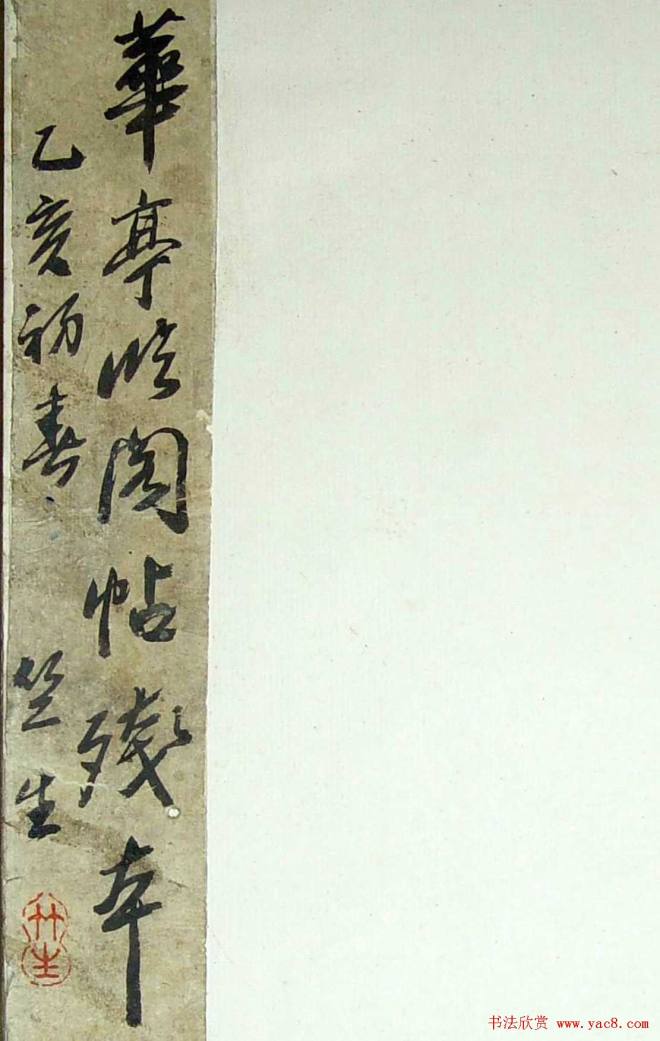 華亭臨閣帖殘本
乙亥初春
竺生
书法欣赏 www.yac8.com